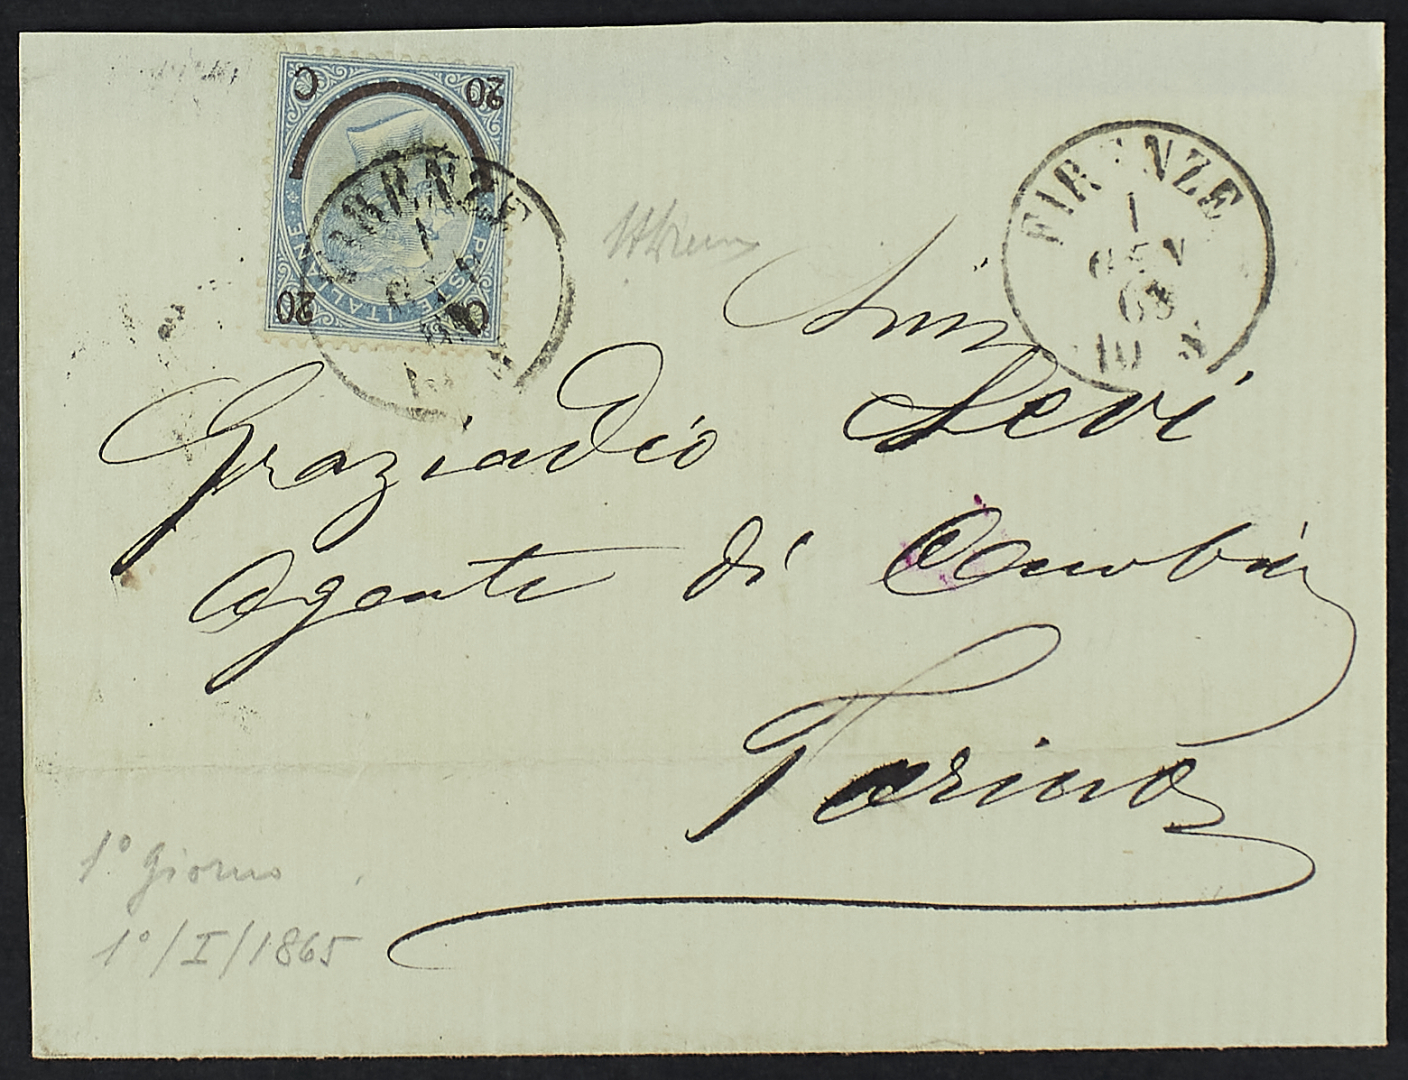 C 20
POSTE ITALIANE
20 C
FIRENZE
1
GEN
FIRENZE
1
GEN
10 S
Levi
Graziadio
agente di Cambio
Torino
1° Giorno
1°/I/1865